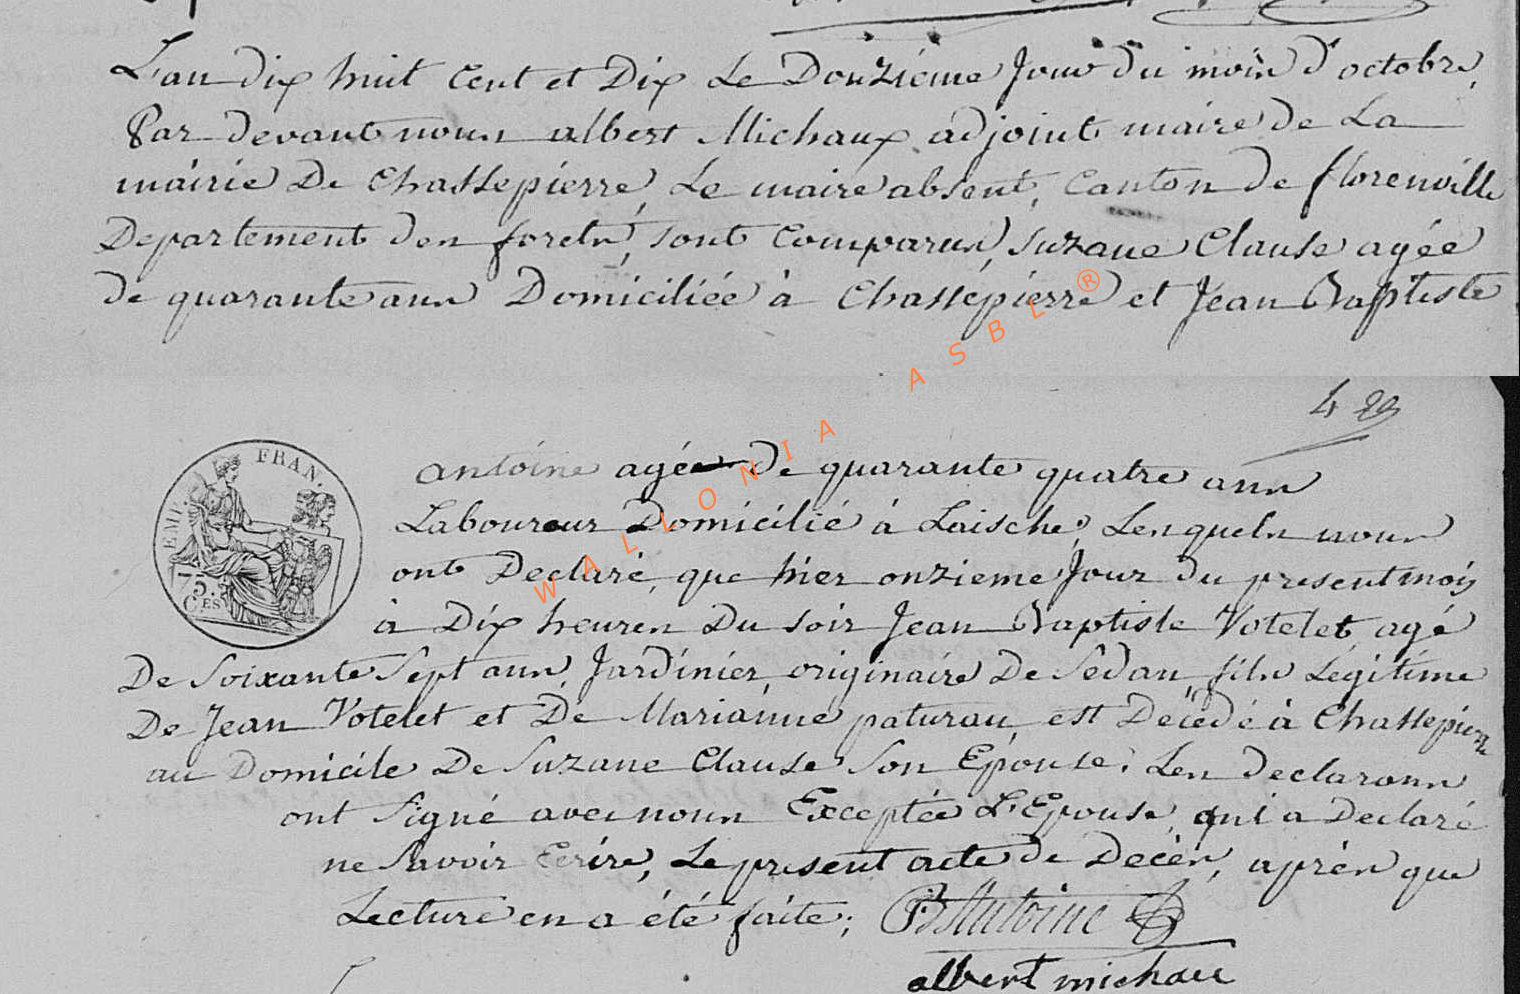 L'an dix huit Cent et Dix Le Douziéme Jour du mois d'octobre,
Par devant nous albert Michaux adjoint maire de La
mairie De Chassepierre, Le maire absent, Canton de florenville
Departement des forets, sont Comparus, Suzane Clause agée
de quarante ans Domiciliée à Chassepierre et Jean Baptiste
429
antoine agée de quarante quatre ans
Laboureur Domicilié à Laische, Lesquels nous
ont Declaré que hier onzieme Jour du present mois
à Dix heures Du soir Jean Baptiste Votelet agé
De Soixante Sept ans, Jardinier, originaire De Sedan fils Légitime
De Jean Votelet et De Marianne paturau, est Décédé à Chassepierre
au Domicile De Suzane Clause Son Epouse; Les declarans
ont Signé avec nous Exceptée L'Epouse, qui a Declaré
ne Savoir Ecrire, Le present acte de Decès, après que
Lecture en a été faite; JBAntoine
albert michaux
EMP. FRAN.
75.
C.ES
WALLONIA ASBL ®